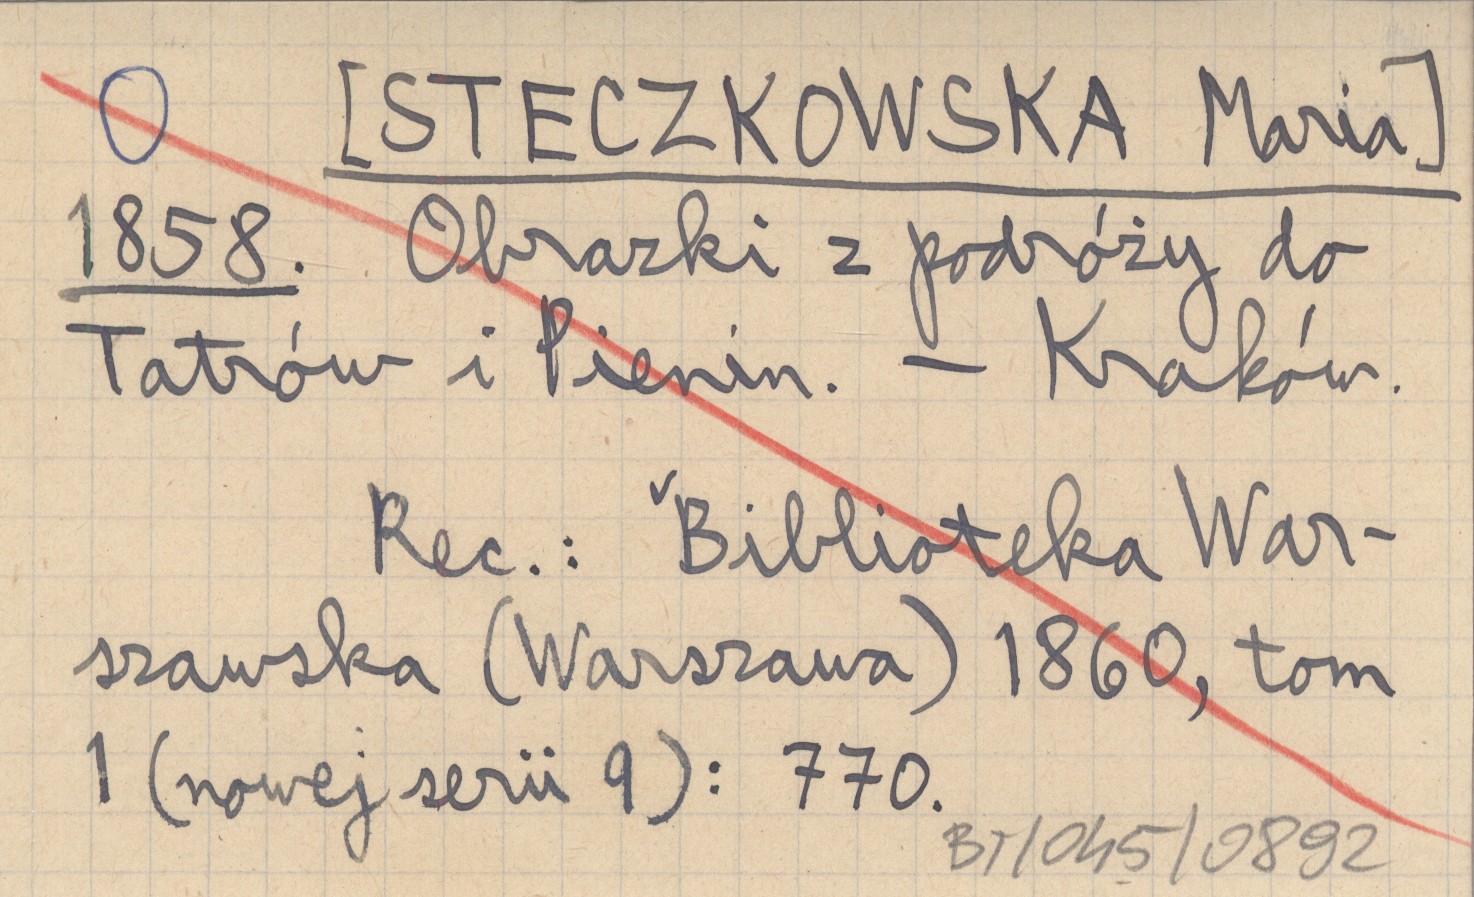 O [STECZKOWSKA Maria]
1858. Obrazki z podróży do
Tatrów i Pienin. — Kraków.
Rec.: ˇBiblioteka War-
szawska (Warszawa) 1860, tom
1 (nowej serii 9): 770.
BT/045/0892